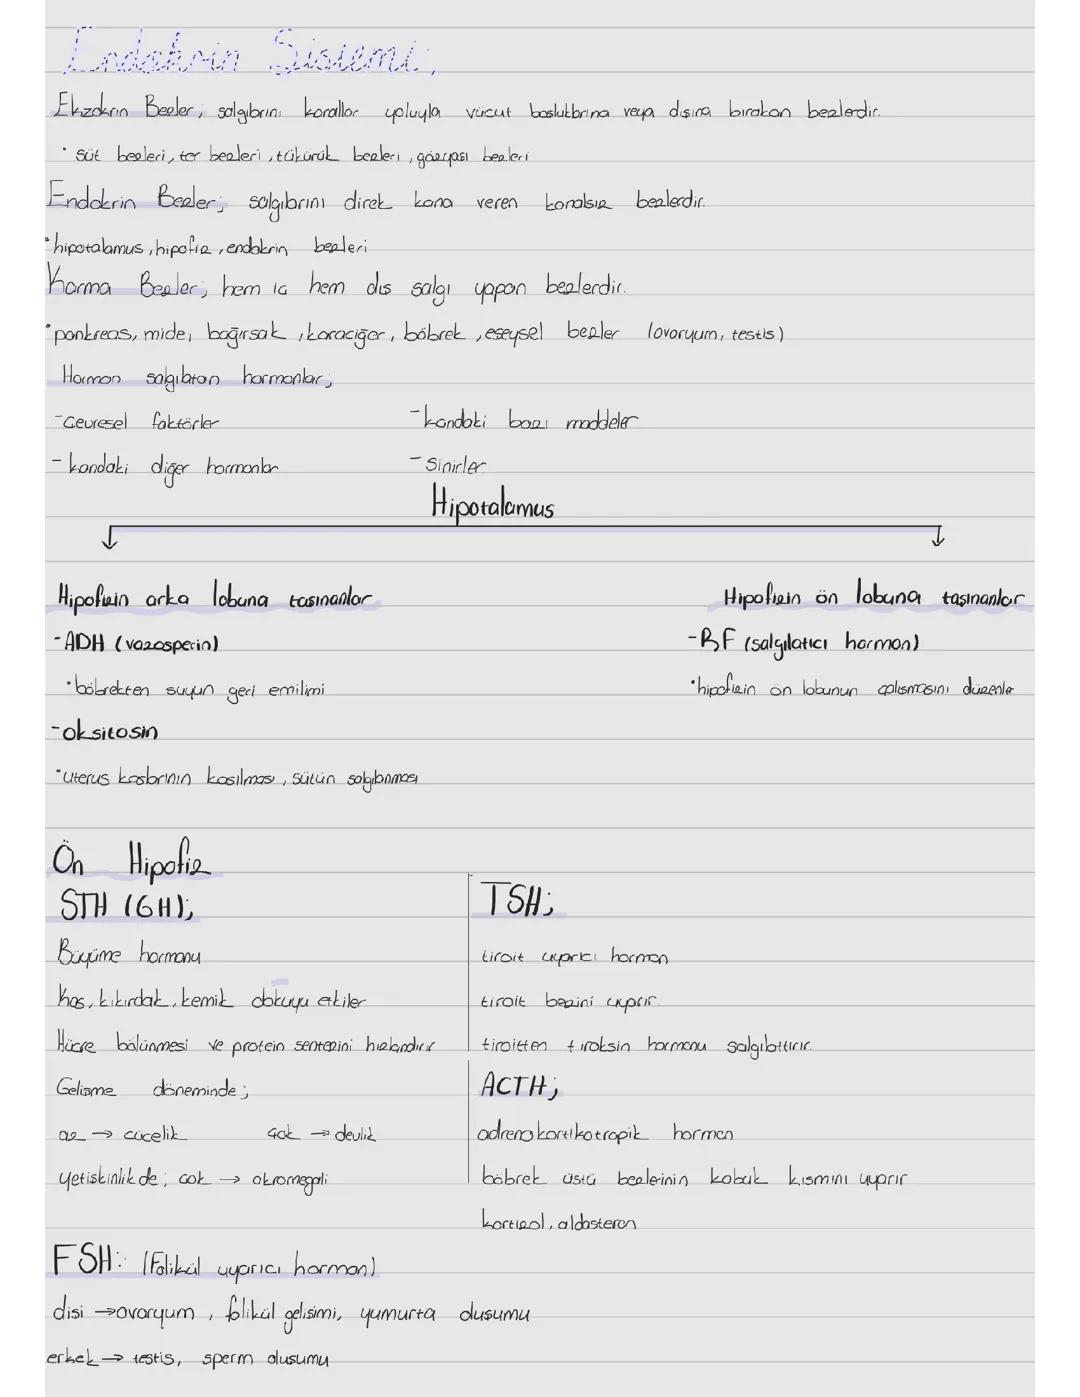 Endokrin Sistemi;
Ekzokrin Bezler; salgılarını kanallar yoluyla vücut boşluklarına veya dışına bırakan bezlerdir.
• süt bezleri, ter bezleri, tükürük bezleri, gözyaşı bezleri
Endokrin Bezler; salgılarını direk kana veren kanalsız bezlerdir.
• hipotalamus, hipofiz, endokrin bezleri
Karma Bezler; hem iç hem dış salgı yapan bezlerdir.
• pankreas, mide, bağırsak, karaciğer, böbrek, eşeysel bezler (ovaryum, testis)
Hormon salgılatan hormonlar;
- Çevresel faktörler - kandaki bazı maddeler
- kandaki diğer hormonlar - Sinirler
Hipotalamus
Hipofizin arka lobuna taşınanlar Hipofizin ön lobuna taşınanlar
- ADH (vazospecin) - RF (salgılatıcı hormon)
• böbrekten suyun geri emilimi • hipofizin ön lobunun çalışmasını düzenler
- oksitosin
• uterus kaslarının kasılması, sütün salgılanması
Ön Hipofiz
STH (GH);
Büyüme hormonu
Kas, kıkırdak, kemik dokuyu etkiler
Hücre bölünmesi ve protein sentezini hızlandırır
Gelişme döneminde;
az → cücelik çok → devlik
yetişkinlikde; çok → akromegali
TSH;
tiroit uyarıcı hormon
tiroit bezini uyarır.
tiroitten tiroksin hormonu salgılattırır.
ACTH;
adrenokortikotropik hormon
böbrek üstü bezlerinin kabuk kısmını uyarır
kortizol, aldosteron
FSH: (Folikül uyarıcı hormon)
dişi → ovaryum, folikül gelişimi, yumurta oluşumu
erkek → testis, sperm oluşumu